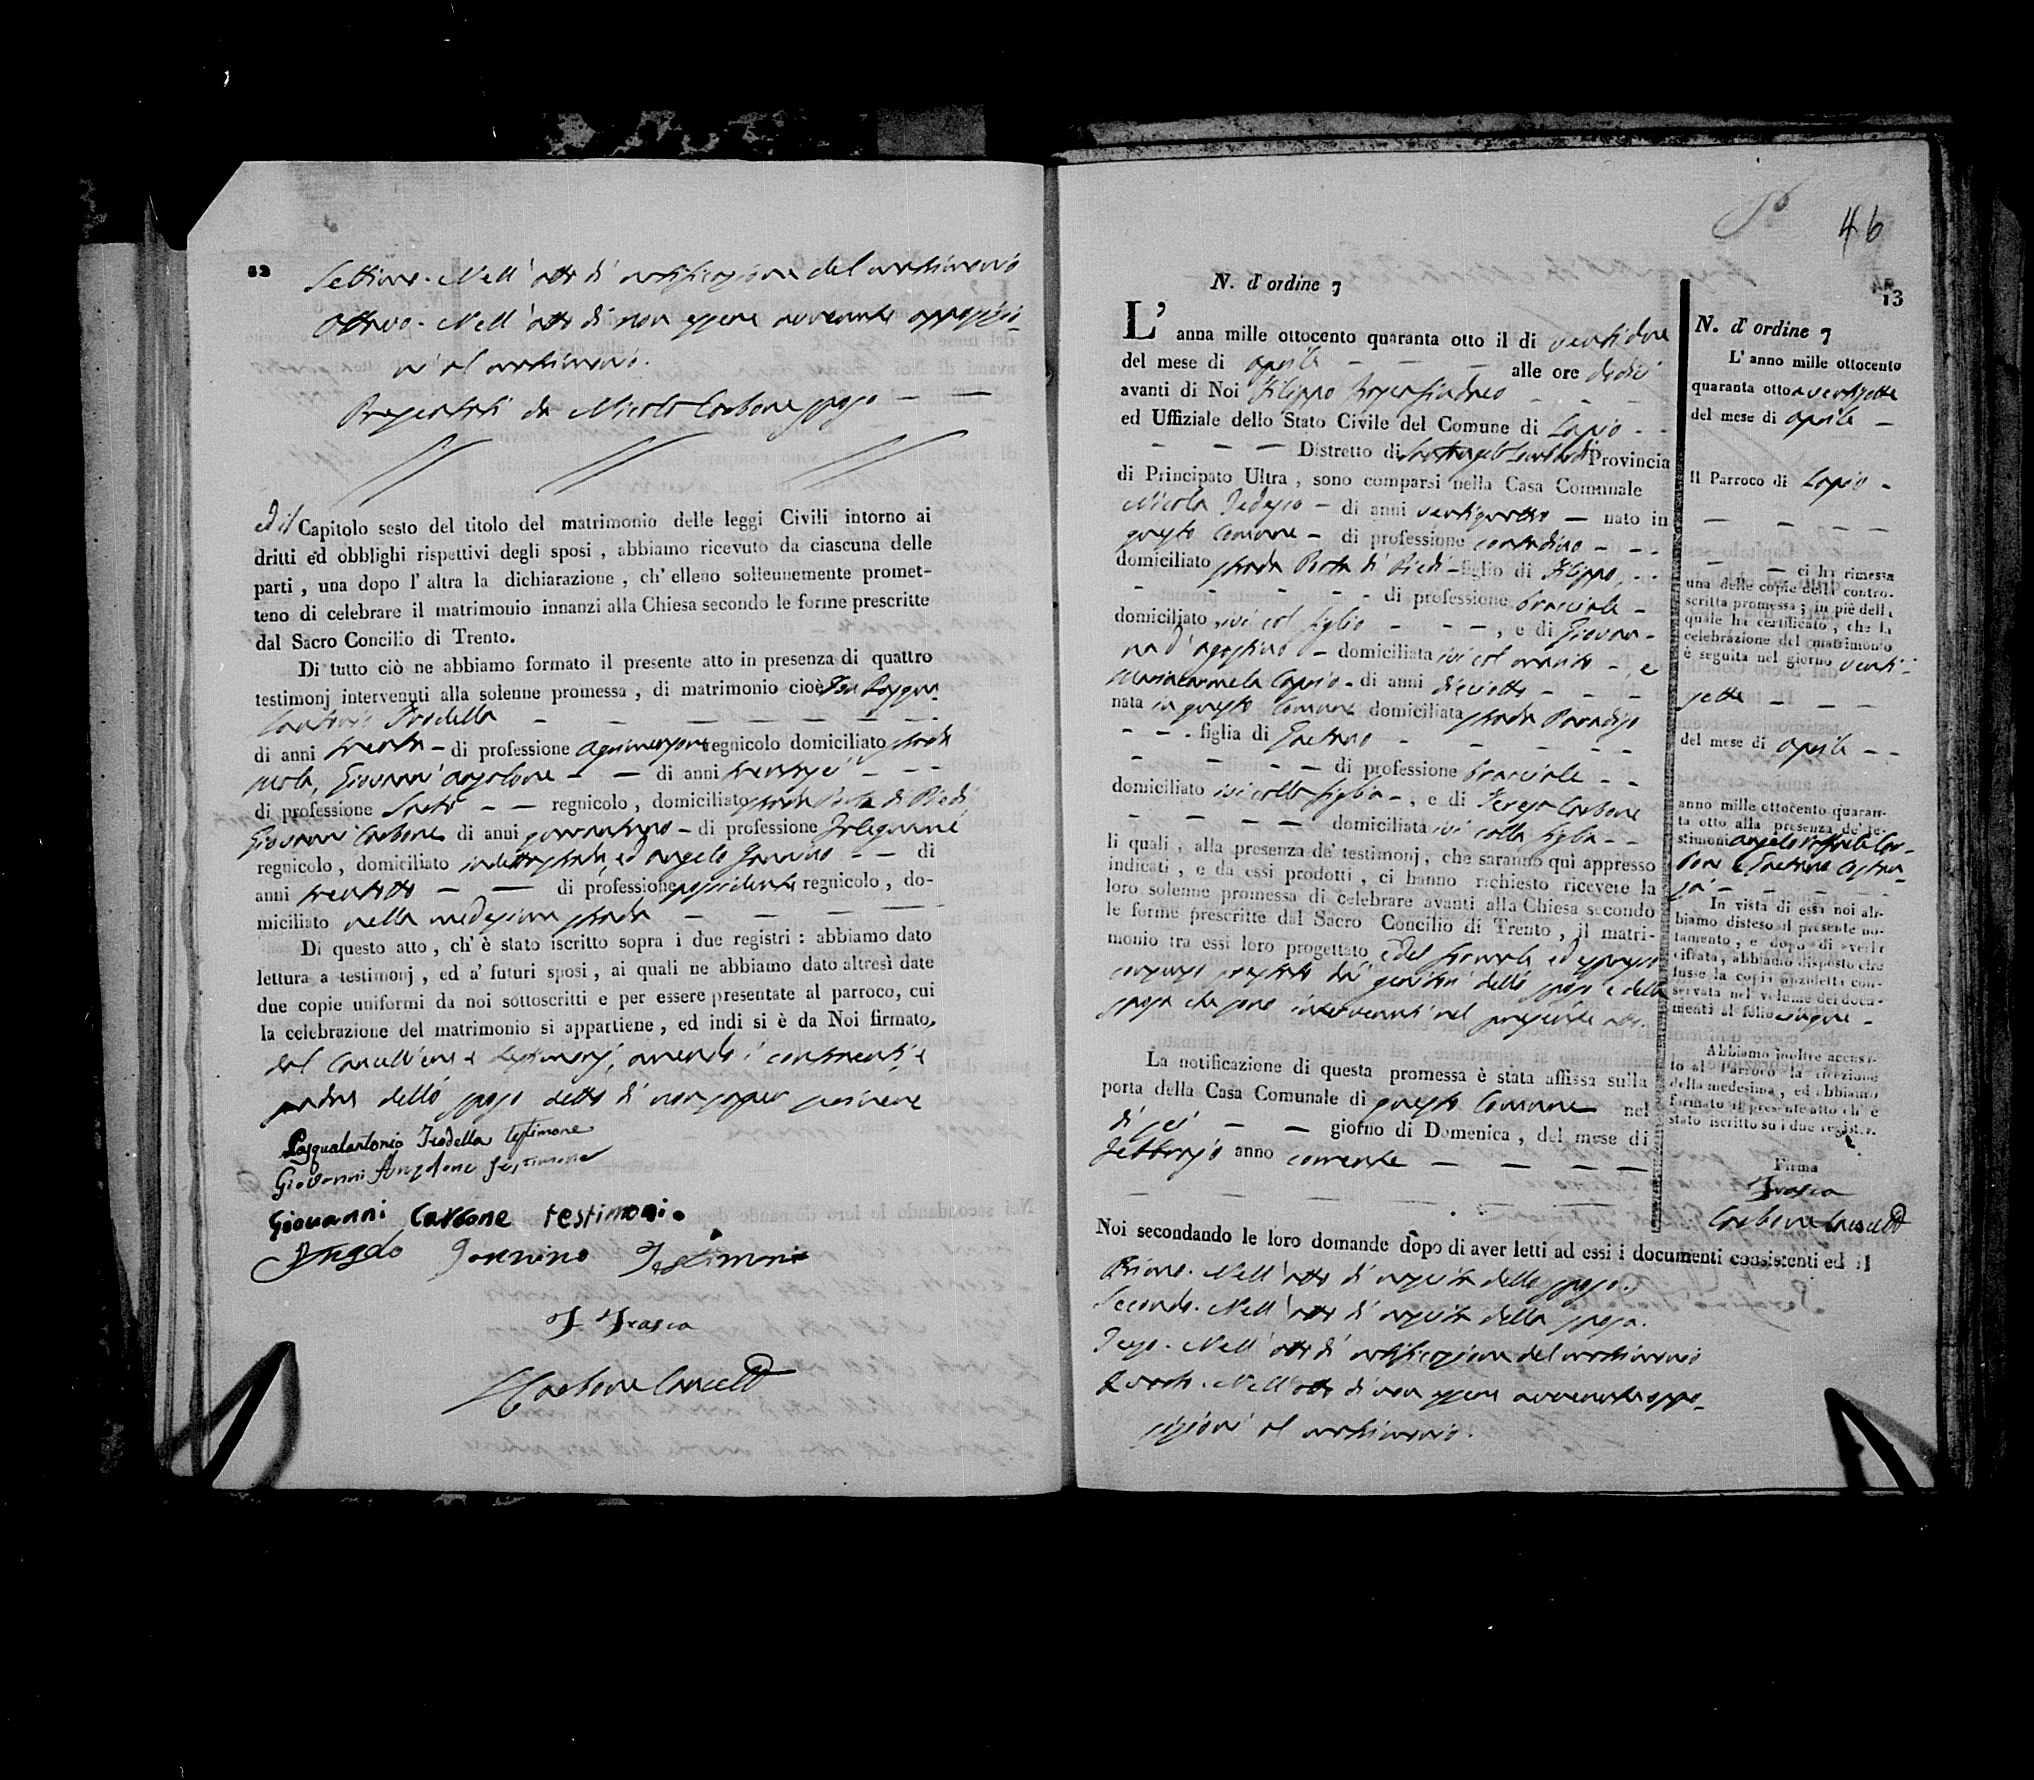 12
Settimo. Nell'atto di notificazione del matrimonio
Ottavo. Nell'atto di non essere avvenute opposizio-
ni al matrimonio.
Presentati da Nicola Carbone sposo — —
ed il Capitolo sesto del titolo del matrimonio delle leggi Civili intorno ai
dritti ed obblighi rispettivi degli sposi , abbiamo ricevuto da ciascuna delle
parti , una dopo l' altra la dichiarazione , ch' elleno sollennemente promet-
teno di celebrare il matrimonio innanzi alla Chiesa secondo le forme prescritte
dal Sacro Concilio di Trento.
Di tutto ciò ne abbiamo formato il presente atto in presenza di quattro
testimonj intervenuti alla solenne promessa , di matrimonio cioè Pasqua-
lantonio Trodella — — — — — — —
di anni trenta - di professione regnicolo domiciliato strada
Giovanni Anzolone — — di anni trentasei — — —
di professione Sarto — — regnicolo , domiciliato strada Porta di Piedi
Giovanni Carbone di anni — di professione Falegname
regnicolo , domiciliato in detta strada, ed Angelo Iannino — — di
anni trentotto — — di professione possidente regnicolo , do-
miciliato nella medesima strada — — — —
Di questo atto , ch' è stato iscritto sopra i due registri : abbiamo dato
lettura a testimonj , ed a' futuri sposi , ai quali ne abbiamo dato altresì date
due copie uniformi da noi sottoscritti e per essere presentate al parroco, cui
la celebrazione del matrimonio si appartiene , ed indi si è da Noi firmato,
dal Cancelliere e testimonj, avendo i contraenti, e
padre dello sposo detto di non saper scrivere
Pasqualantonio Trodella testimone
Giovanni Anzolone testimone
Giovanni Carbone testimoni.
Angelo Iannino Testimoni
F Frasca
Carbone Cancell
46
13
N. d' ordine 7
L' anna mille ottocento quaranta otto il di ventidue
del mese di aprile — — — alle ore dodici
avanti di Noi Filippo Frasca Sindaco — — —
ed Uffiziale dello Stato Civile del Comune di Lapio - -
— — — Distretto di Santangelo Lombardi Provincia
di Principato Ultra , sono comparsi nella Casa Comunale
Nicola Tedesco — di anni ventiquattro — nato in
questo Comune — di professione contadino — - -
domiciliato strada Porta di Piedi - figlio di Filippo, - -
— — — — — di professione bracciale —
domiciliato ivi col figlio — — — , e di Giovan-
na d'Agostino — domiciliata ivi col marito — , e
Mariacarmela Caprio - di anni diciotto — — —
nata in questo Comune domiciliata strada Paradiso
— — . figlia di Gaetano — — — — —
— — — — di professione bracciale — —
domiciliato ivi colla figlia — , e di Teresa Carbone
— — — — domiciliata ivi colla figlia - -
li quali , alla presenza de' testimonj , che saranno quì appresso
indicati , e da essi prodotti , ci hanno richiesto ricevere la
loro solenne promessa di celebrare avanti alla Chiesa secondo
le forme prescritte dal Sacro Concilio di Trento , il matri-
monio tra essi loro progettato e del formale ed espresso
consenso prestato dai genitori dello sposo e della
sposa che sono intervenuti nel presente atto.
La notificazione di questa promessa è stata affissa sulla
porta della Casa Comunale di questo Comune nel
dì sei — — giorno di Domenica , del mese di
Febbrajo anno corrente — — — —
Noi secondando le loro domande dopo di aver letti ad essi i documenti consistenti ed il
Primo. Nell'atto di nascita dello sposo.
Secondo. Nell'atto di nascita della sposa.
Terzo. Nell'atto di notificazione del matrimonio
Quarto. Nell'atto di non essere avvenute oppo-
sizioni al matrimonio.
N. d' ordine 7
L' anno mille ottocento
quaranta otto a ventisette
del mese di aprile —
Il Parroco di Lapio -
— — — —
— — ci ha rimessa
una delle copie della contro-
scritta promessa ; in piè della
quale ha certificato , che la
celebrazione del matrimonio
è seguita nel giorno venti-
sette — — —
del mese di aprile - -
anno mille ottocento quaran-
ta otto alla presenza de' te-
stimoni Angelo Raffaele Car-
bone e Gaetano
— — — —
In vista di essa noi ab-
biamo disteso il presente no-
tamento , e dopo di averla
cifrata , abbiamo disposto che
fusse la copia anzidetta con-
servata nel volume dei docu-
menti al folio cinque -
Abbiamo inoltre accusa-
to al Parroco la ricezione
della medesima , ed abbiamo
formato il presente atto ch' è
stato iscritto su i due registri.
Firma
Frasca
Carbone Cancell